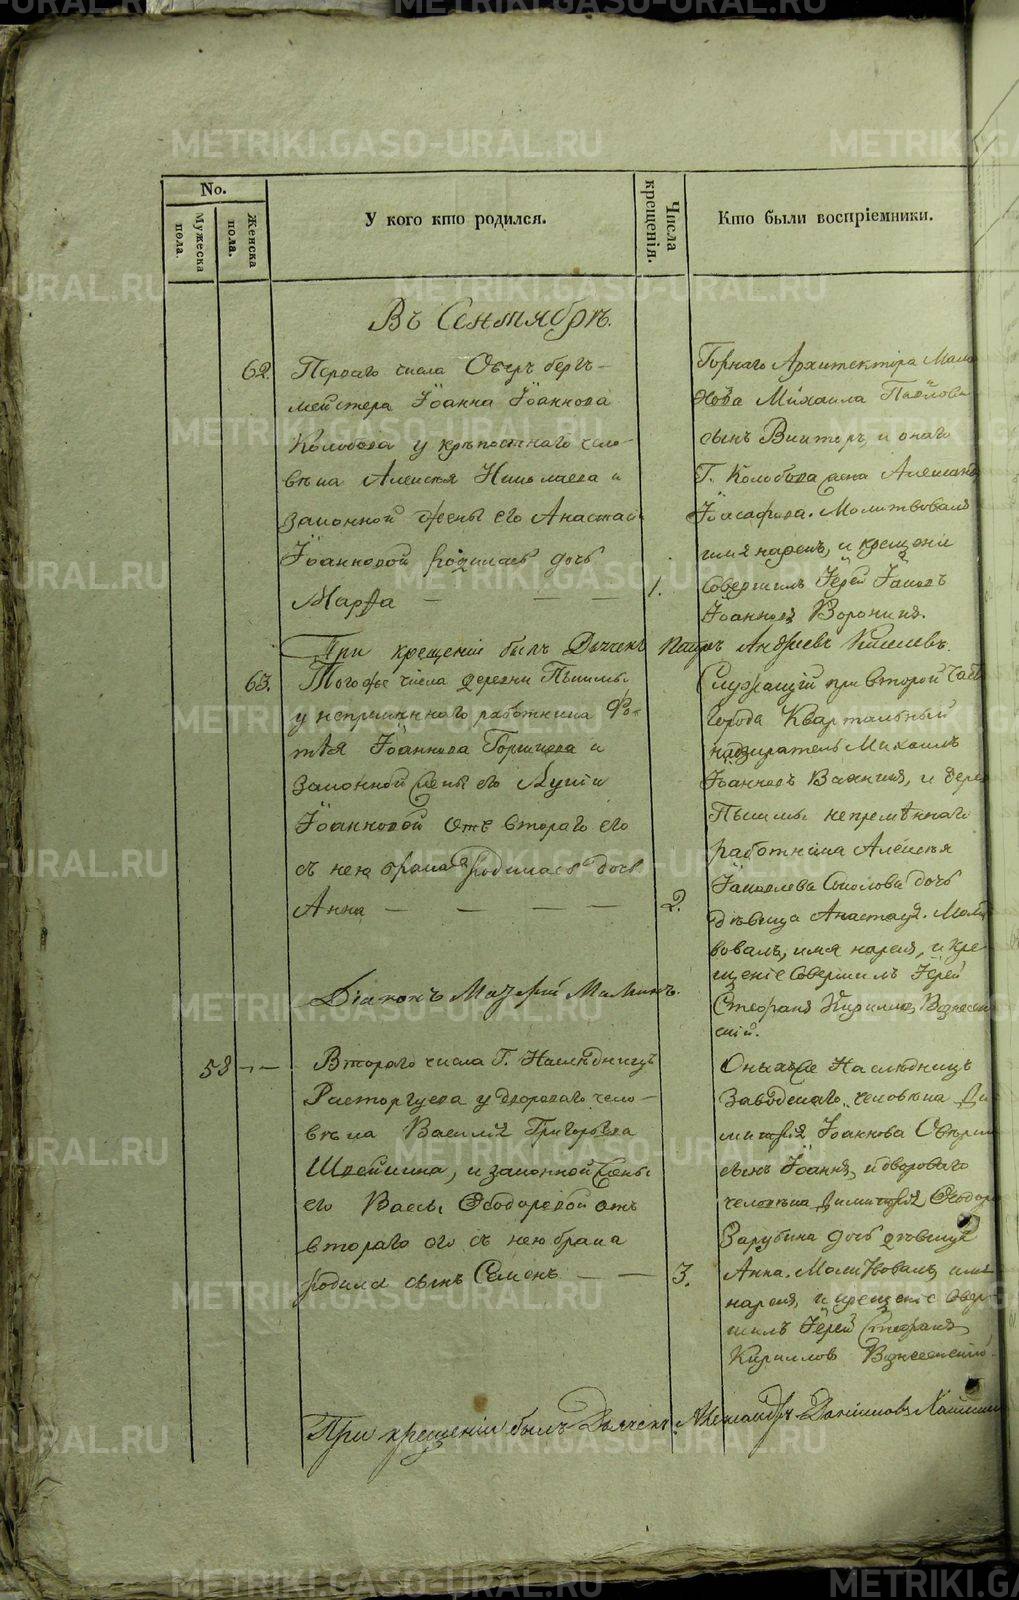 METRIKI.GASO-URAL.RU
No.
Мужеска пола.
Женска пола.
У кого кто родился.
Числа крещенія.
Кто были воспріемники.
Въ Сентябрѣ.
62.
Перваго числа Оберъ берг-
мейстера Іоанна Іоаннова
Колобова у крѣпостнаго чело-
вѣка Алексѣя Николаева и
законной жены его Анастасіи
Іоанновой родилась дочь
Марѳа
1.
Горнаго Архитектора Мала
хова Михаила Павлова
сынъ Викторъ, и онаго
Г. Колобова жена Александра
Іоасафова. Молитвовалъ
имя нарекъ, и крещеніе
совершилъ Іерей Іаковъ
Іоанновъ Воронинъ.
При крещеніи былъ Дьячекъ Петръ Андреевъ Киселевъ.
63.
Тогоже числа деревни Пышмы
у непремѣннаго работника Фо-
тія Іоаннова Горинова и
законной жены его
Іоанновой отъ втораго его
съ нею брака родилась дочь
Анна
2.
Служащій при второй Части
города Квартальный
надзиратель Михаилъ
Іоанновъ и дерев
Пышмы непремѣннаго
работника Алексѣя
Іаковлева Соколова дочь
дѣвица Анастасія. Молит
вовалъ, имя нарекъ, и кре-
щеніе совершилъ Іерей
Стефанъ Кирилловъ Вознесен
скій.
Діаконъ
53
Втораго числа Г. Наслѣдницъ
Расторгуева у двороваго чело-
вѣка Василія Григорьева
Швейкина, и законной жены
его Вассы Ѳеодоровой отъ
втораго его съ нею брака
родился сынъ Семенъ
3.
Оныхъ же Наслѣдницъ
Заводскаго человѣка Ди
митрія Іоаннова
сынъ Іоаннъ, и двороваго
человѣка Димитрія Ѳеодоро
Зарубина дочь дѣвица
Анна. Молитвовалъ, имя
нарекъ, и крещеніе совер-
шилъ Іерей Стефанъ
Кирилловъ Вознесенскій.
При крещеніи былъ Дьячекъ Александръ Данииловъ